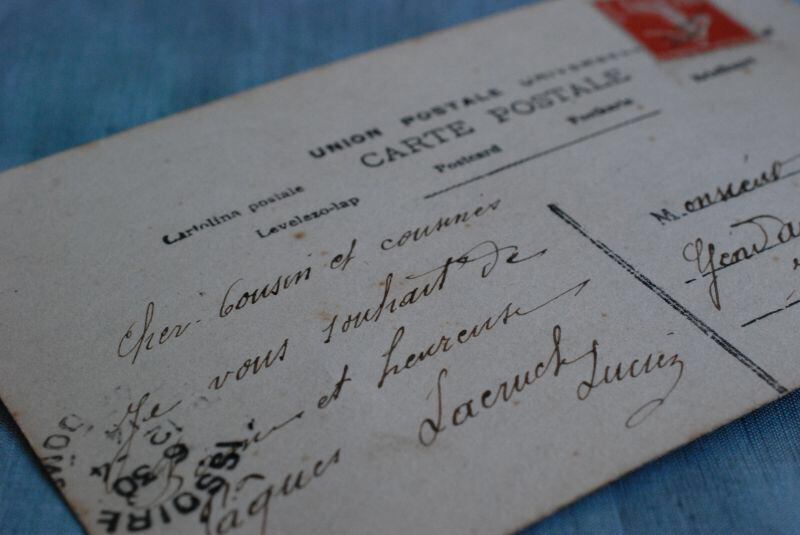 UNION POSTALE UNIVERSELLE
CARTE POSTALE
Cartolina postale
Levelezo-lap
Postcard
Postkarte
Cher Cousin et cousines
Je vous souhait de
et heureuse
Pâques
Lacruch
Lucien
Monsieur
ISSOIRE